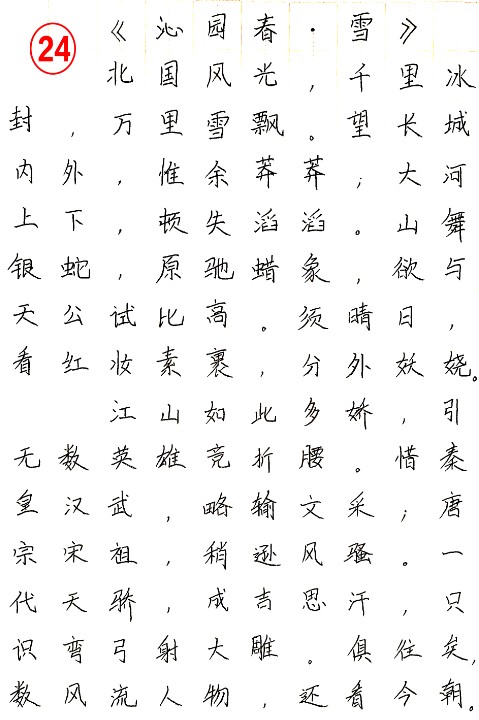 24
《沁园春·雪》
北国风光,千里冰
封,万里雪飘。望长城
内外,惟余莽莽;大河
上下,顿失滔滔。山舞
银蛇,原驰蜡象,欲与
天公试比高。须晴日,
看红妆素裹,分外妖娆。
江山如此多娇,引
无数英雄竞折腰。惜秦
皇汉武,略输文采;唐
宗宋祖,稍逊风骚。一
代天骄,成吉思汗,只
识弯弓射大雕。俱往矣,
数风流人物,还看今朝。